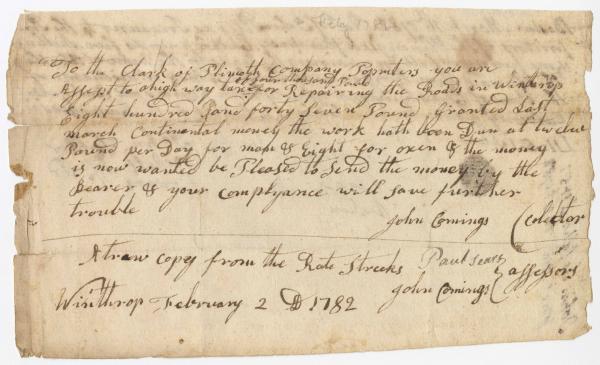 To the Clark of Plimoth Company Popriters you are
of four thousand Pound
Assept to a high way taxe for Repairing the Roads in Winthrop
Eight hundred and forty Seven Pound Granted Last
march Continental money the work hath been Dun at twelve
Pound per Day for man & Eight for oxen & the money
is now wanted be Pleased to Send the money by the
Bearer & your Complyance will save further
trouble
John Comings (Colector
A traw copey from the Rate Streeks Paul Sears
John Comings } assessors
Winthrop February 2 AD 1782